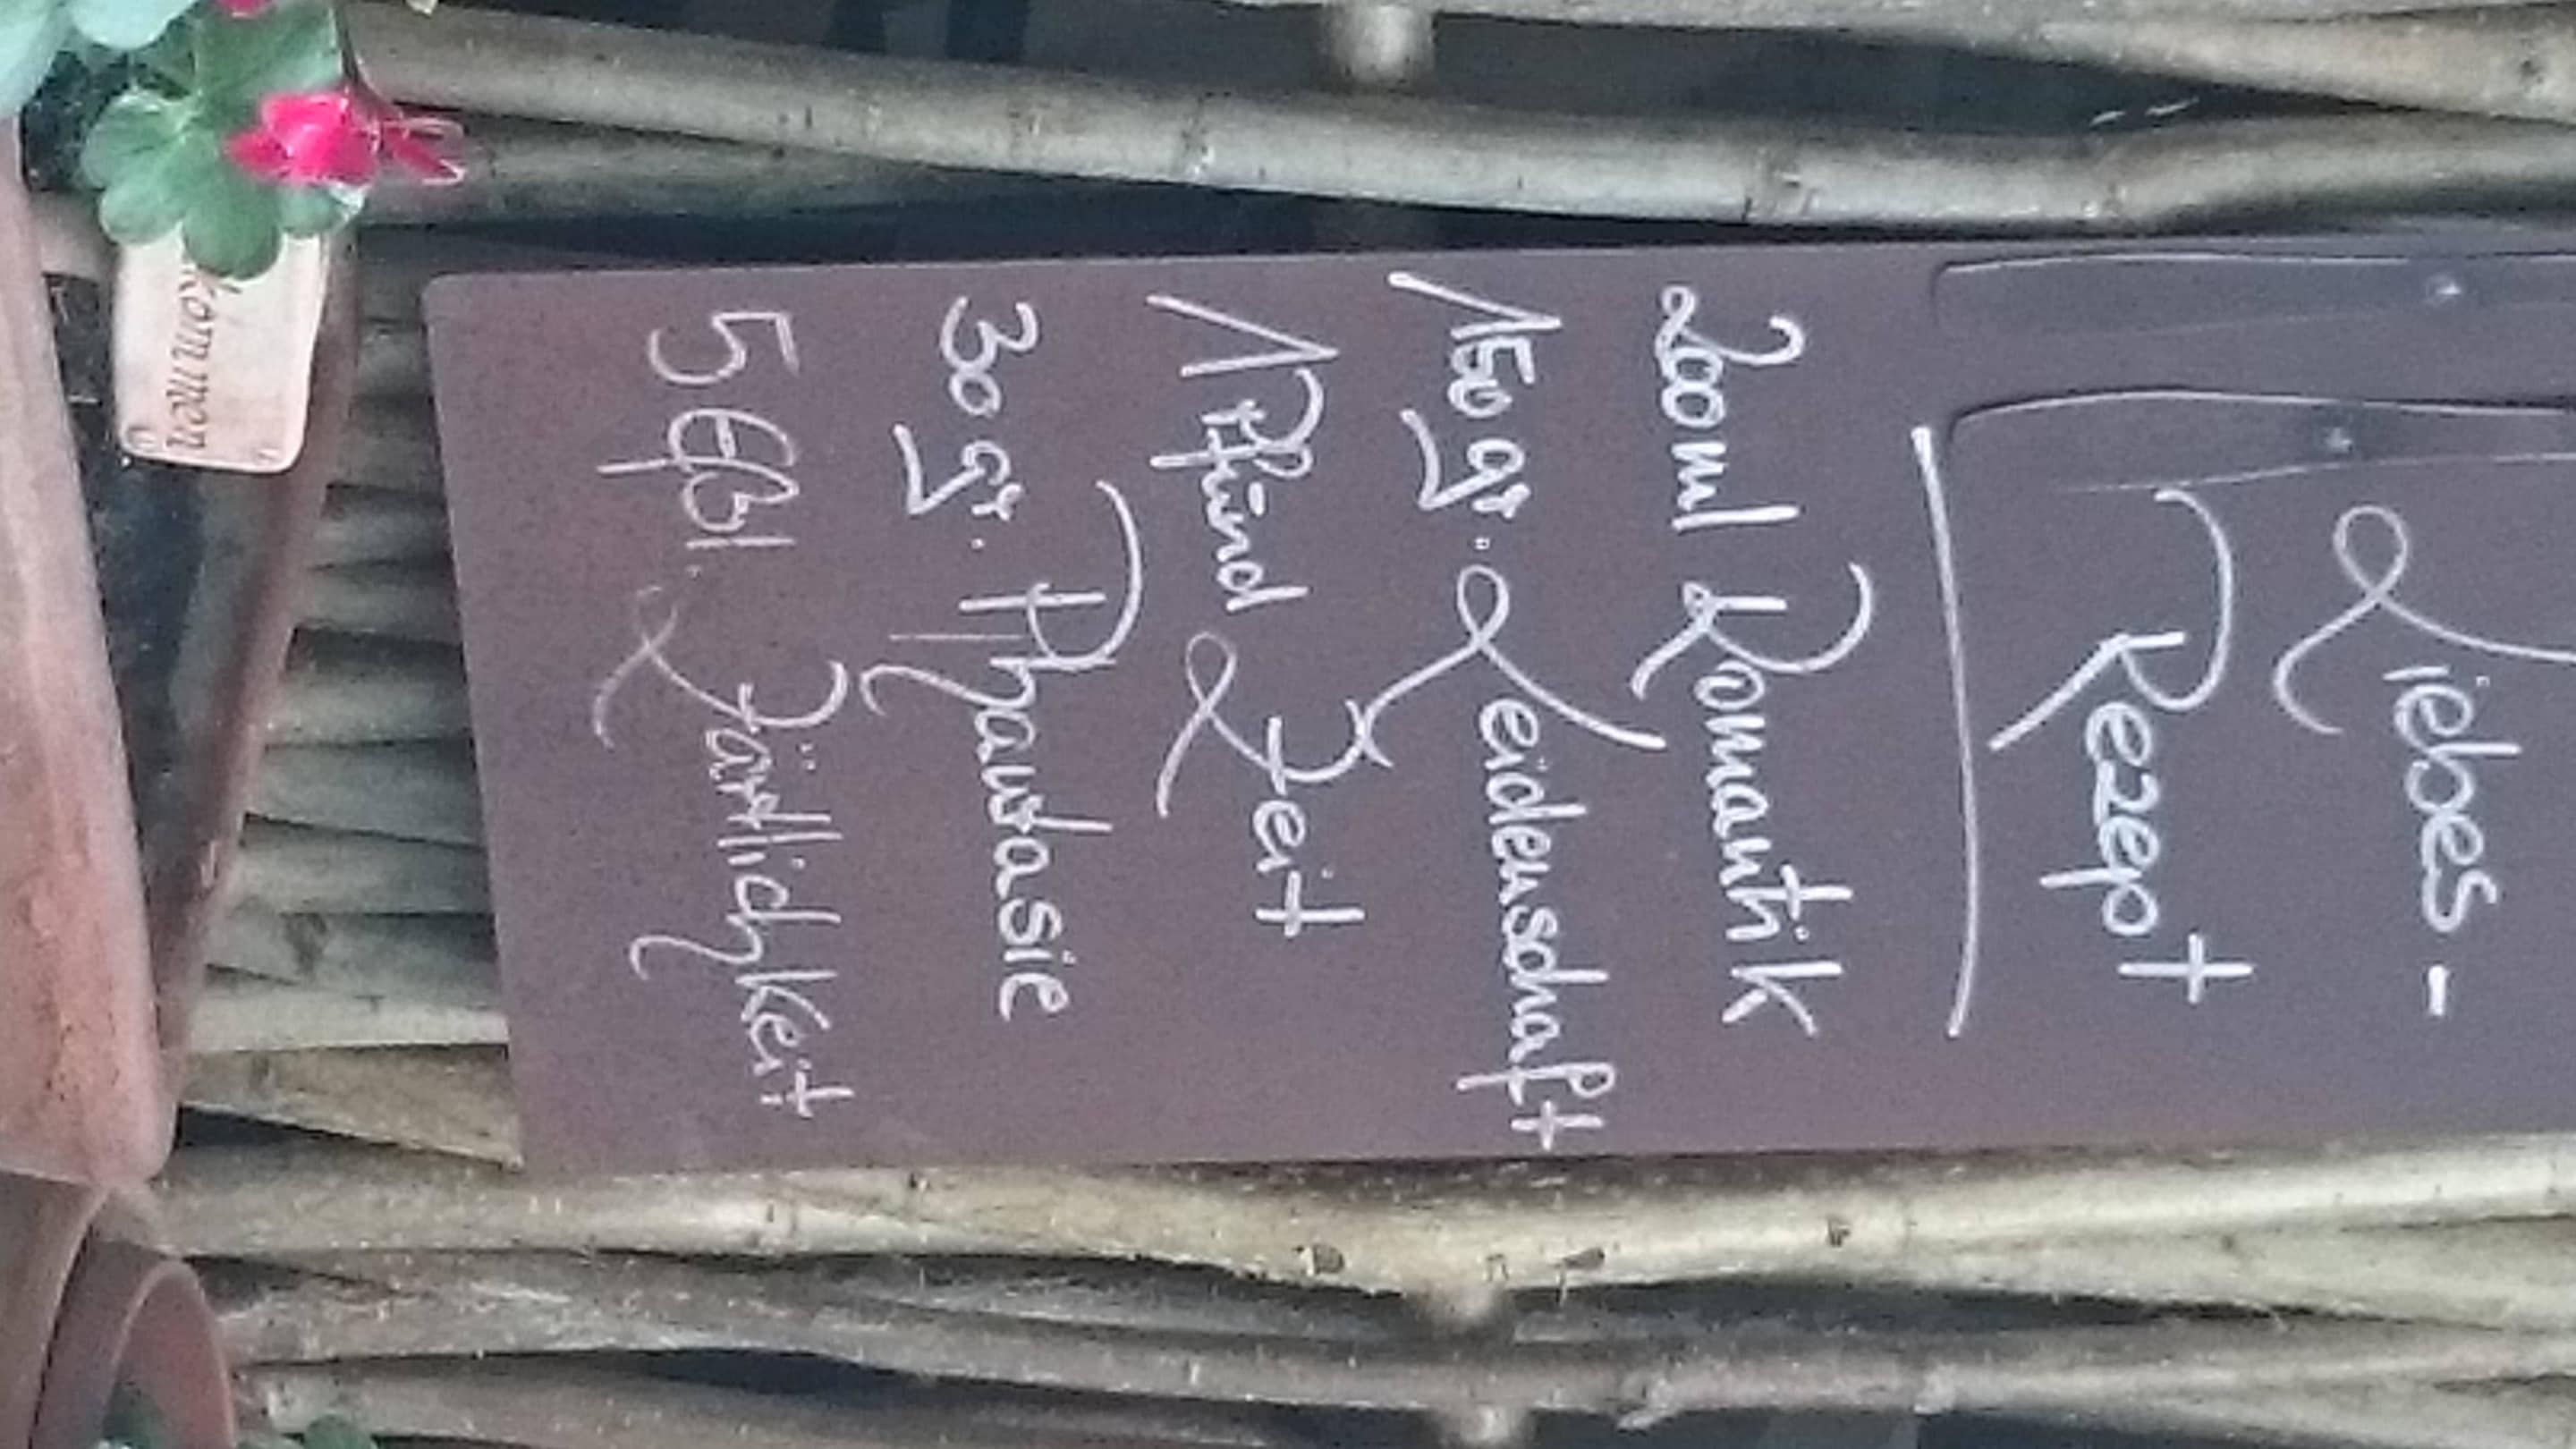 Liebes-
Rezept
200ml Romantik
150 gr. Leidenschaft
1 Pfund Zeit
30 gr. Phantasie
5 Eßl. Zärtlichkeit
kommen